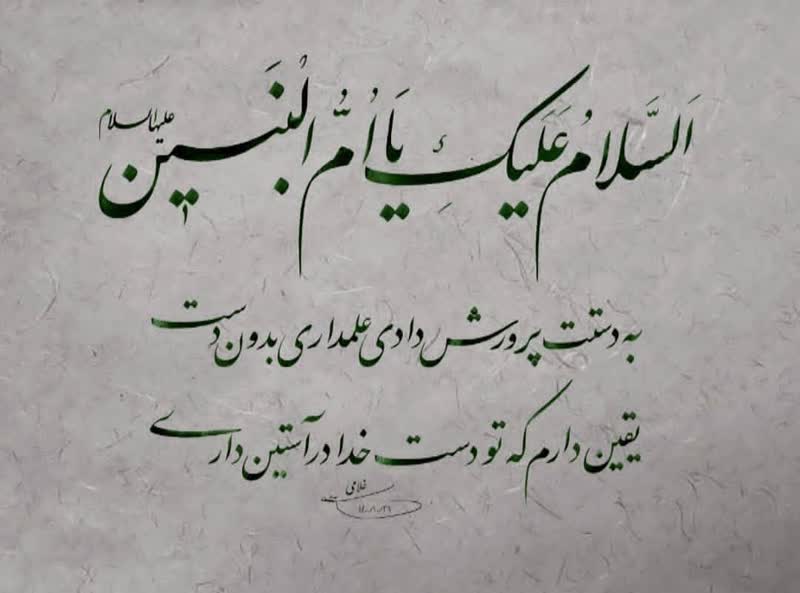 اَلسَّلامُ عَلَیکِ یا اُمَّ الْبَنین علیهاالسلام
به دستت پرورش دادی علمداری بدون دست
یقین دارم که تو دست خدا در آستین داری
غلامی